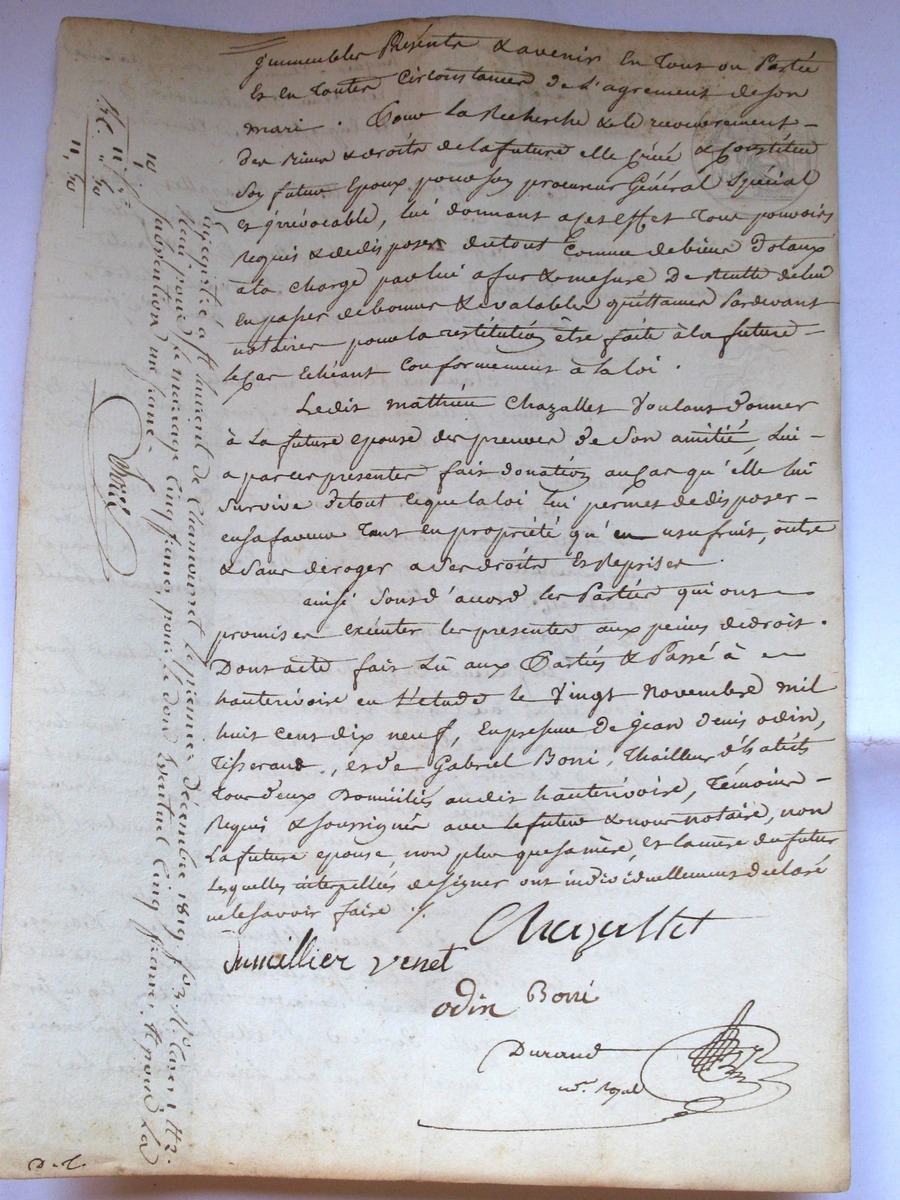 immeubles Présents & avenir En Tout ou Partie
Et En Toutes Circonstances de L'agrement de son
mari . Pour La Recherche & le recouvrement
des biens & droits de la future elle Créé & Constitue
Son futur Epoux pour son procureur Général Spécial
et irrévocable, lui donnant a cet effet Tous pouvoirs
requis & de disposer du tout Comme de biens Dotaux
a la charge par lui a fur & mesure De
En passer de bonnes & valables quittances Pardevant
notaires pour la restitution être faite à la future
le Cas Echéant Conformement à la loi .
Ledit mathieu Chazallet Voulant donner
à La future epouse des preuves de Son amitié, Lui
a par ces presentes fait donation au Cas qu'elle lui
Survive de tout ce que la loi lui permet de disposer
en sa faveur Tant en propriété qu'en usufruit, outre
& Sans deroger a Ses droits Et Reprises .
ainsi Sont d'accord les Parties qui ont
promis executer les presentes aux peines de droit .
Dont acte fait Lu aux Parties & Passé à
hauterivoire en L'etude le Vingt Novembre mil
huit cent dix neuf, En presence De jean denis odin,
Tisserand, et de Gabriel Borri, Thailleur d'habits
Tous deux Domiciliés audit hauterivoire, Témoins
Requis & soussignés avec le futur & nous notaire, non
La future epouse, non plus que sa mère, et la mere du futur
Lesquelles interpellées de signer ont individuellement declaré
ne le savoir faire ./.
Chazallet
venet
odin Borri
Durand
nre. Royal
Enregistré à St Laurent de Chamousset le premier décembre 1819 fo 3
Reçu pour le mariage Cinq francs, pour le don Eventuel Cinq francs, Et pour la
subvention un franc
D. C.